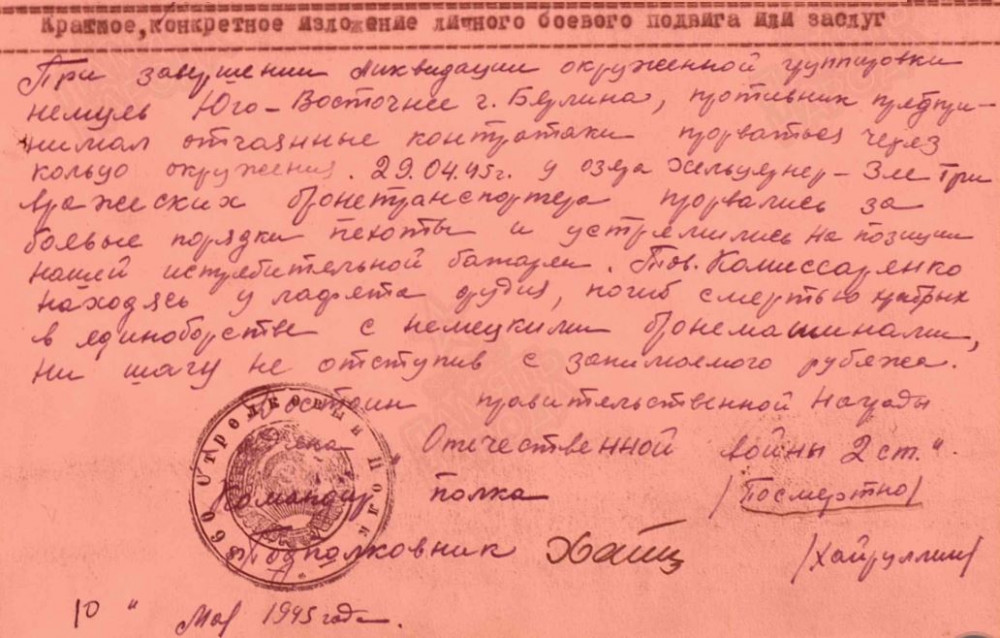 Краткое, конкретное изложение личного боевого подвига или заслуг
При завершении ликвидации окруженной группировки
немцев Юго-Восточнее г. Берлина, противник предпри-
нимал отчаянные контратаки прорваться через
кольцо окружения. 29.04.45г. у озера Хельцернер-Зее три
вражеских бронетранспортера прорвались за
боевые порядки пехоты и устремились на позиции
нашей истребительной батареи. Тов. Комиссаренко
находясь у лафета орудия, погиб смертью храбрых
в единоборстве с немецкими бронемашинами,
ни шагу не отступив с занимаемого рубежа.
Достоин правительственной награды
"Отечественной войны 2 ст."
Командир полка /Посмертно/
Подполковник /Хайруллин/
10 " мая 1945 года.
860 Стрелковый Полк